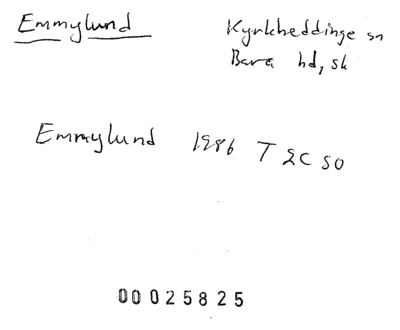 Emmylund
Kyrkheddinge sn
Bara hd, sk
Emmylund 1986 T 2C SO
00025825